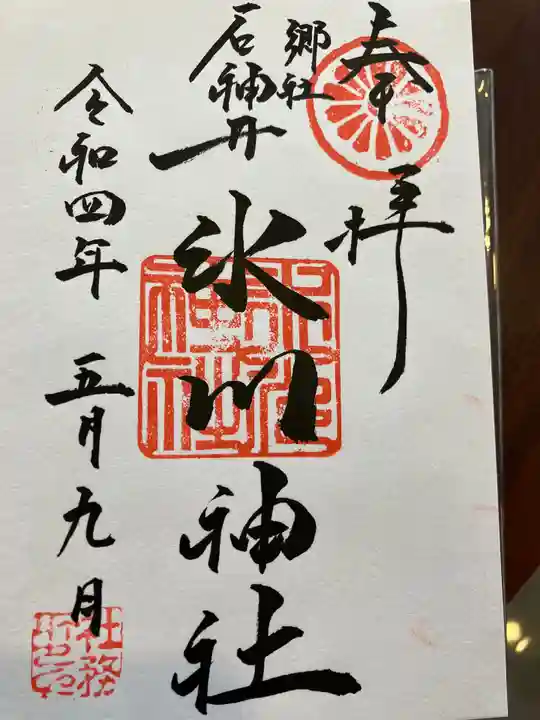 奉拝
郷社
石神井
氷川神社
令和四年 五月九日
社務所之印